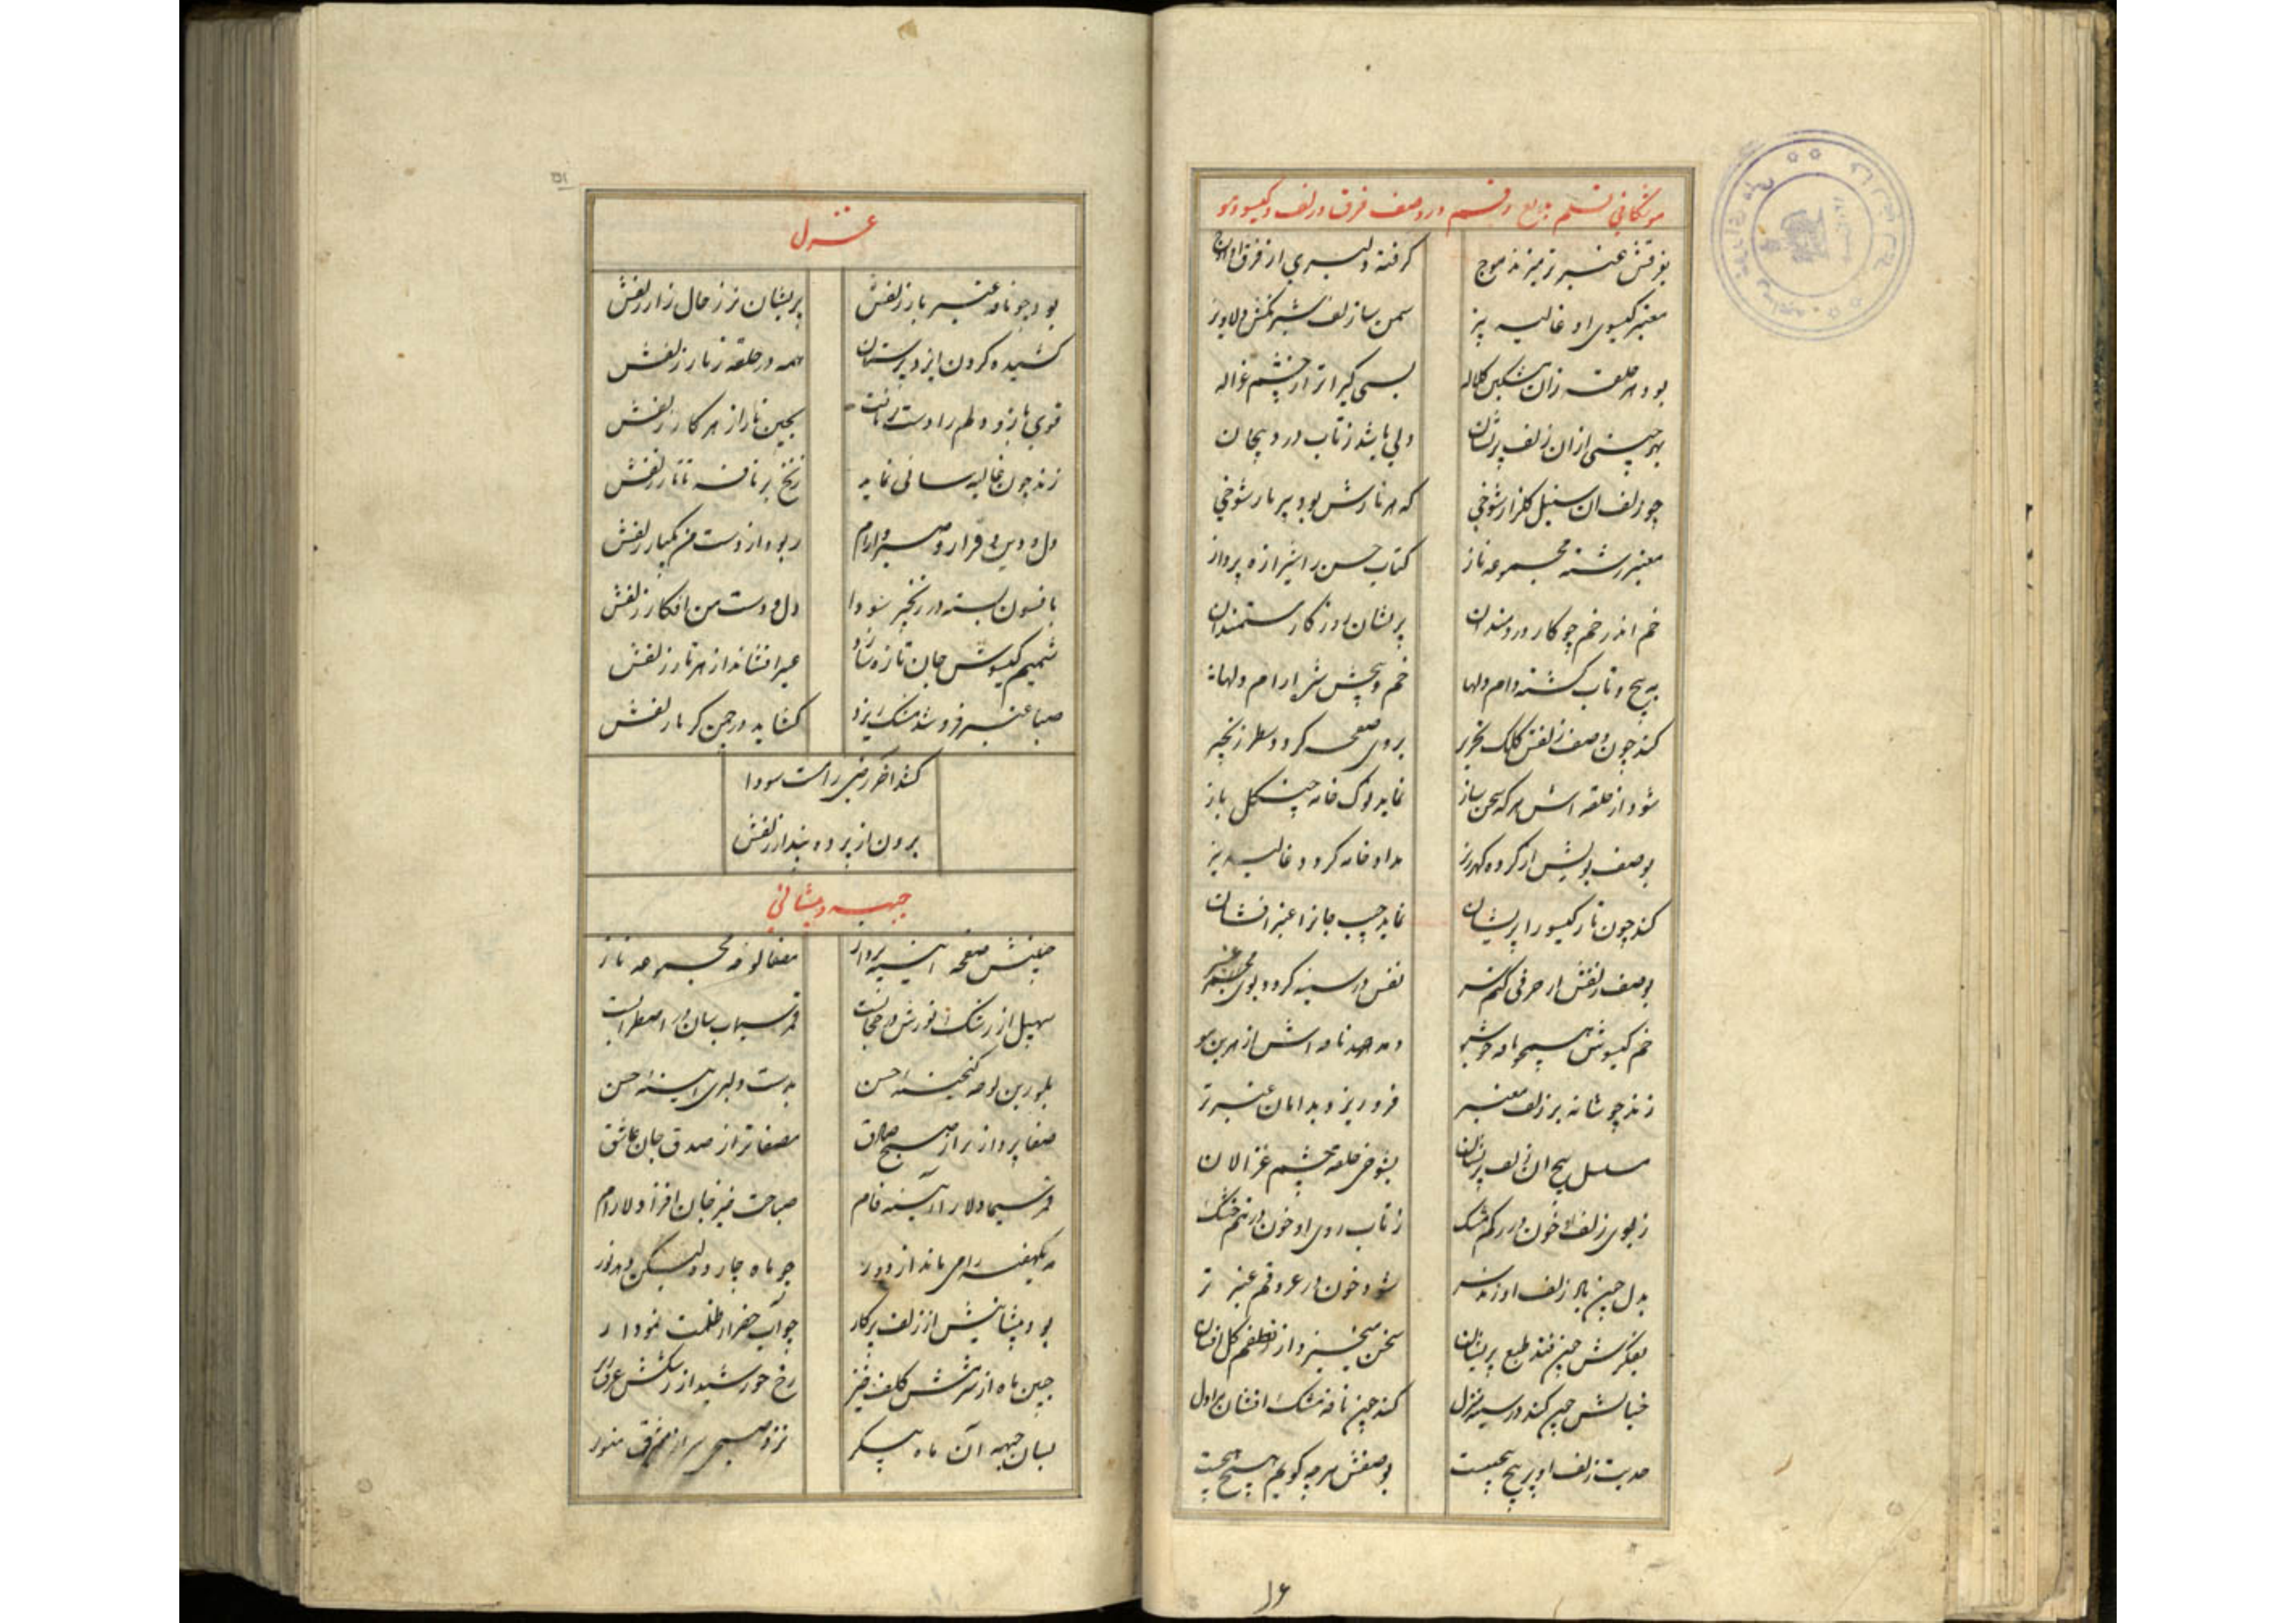 موشکافی قلم بدیع رقم در وصف فرق و زلف و گیسو و مو
بفرقش عنبر تر میزند موج گرفته دلبری از فرق او اوج
معنبر گیسوی او غالیه بیز سمن سا زلف شبرنگش دلاویز
بود هر حلقه زان مشکین کلاله بسی گیراتر از چشم غزاله
بهر چینی ازان زلف پریشان دلی باشد ز تاب درد پیچان
چو زلف ان سنبل گلزار شوخی که هر تارش بود پر بار شوخی
معنبر رشته مجموعه ناز کتاب حسن را شیرازه پرداز
خم اندر خم چو کار دردمندان پریشان روزگار مستمندان
به پیچ و تاب گشته دام دلها خم و پیچش شد ارام دلها
کند چون وصف زلفش کلک تحریر بروی صفحه گردد سطر زنجیر
شود از حلقه اش هرگه سخن ساز نماید نوک خامه چین گل باز
بوصف بویش ار گردد گهرریز مداد خامه گردد غالیه بیز
کند چون تار گیسو را پریشان نماید جیب جانرا عنبر افشان
بوصف زلفش ار حرفی کنم سر نفس در سینه گردد بوی عنبر
خم گیسوش همچو نافه خوشبو دمد صد نافه اش از هر بن مو
زند چو شانه بر زلف معنبر فرو ریزد بدامان عنبر تر
مسلسل پیچ ان زلف پریشان بشوخی حلقه چشم غزالان
ز بوی زلف او خون در رگم مشک ز تاب روی او خون در تنم خشک
بدل چین یاد زلف او زند سر شود خون در عروقم عنبر تر
بفکرش چین فتد طبع پریشان سخن میخیزد از نطقم گل افشان
خیالش چین کند در سینه منزل کند چین نافه مشک افشان بر دل
حدیث زلف او پر پیچ پیچست بوصفش هر چه گویم هیچ هیچست
۱۶
۱۵۱
غزل
بود چو نافه عنبر بار زلفش پریشان تر ز حال زار زلفش
کشیده گردن ایزد پرستان همه در حلقه زنار زلفش
قوی بازو دلم را دست بچین ناز از هر کار زلفش
زند چون غالیه سائی نماید زنخ بر نافه تاتار زلفش
دل و دین و قرار و صبر و ارام ربود از دست من یکبار زلفش
بافسون بسته در زنجیر سودا دل و دست من افکار زلفش
شمیم گیسوش جان تازه سازد عبیر افشاند از هر تار زلفش
صبا عنبر فروشد مشک ریزد گشاید در چمن گر بار زلفش
کند اخر رضی راست سودا
برون از پرده پندار زلفش
جبهه و پیشانی
جبینش صفحه ائینه پرداز مصفا لوحه مجموعه ناز
سهیل از رشک نورش در حجابست قمر سیماب سان در اضطرابست
بلورین لوحه گنجینهٔ حسن بدست دلبری ائینهٔ حسن
صفا پردازتر از صبح صادق مصفاتر از صدق جان عاشق
قمر سیما دلارا آئینه فام صباحت خیز جان افزا دلارام
مه یکهفته را می ماند از دور چو ماه چارده لیکن همه نور
بود پیشانیش از زلف پرکار چو آب خضر از ظلمت نمودار
جبین ماه از شرمش کلف خیز رخ خورشید از رشکش عرق ریز
بسان جبهه آن ماه پیکر نزد صبحی سر از مشرق منور